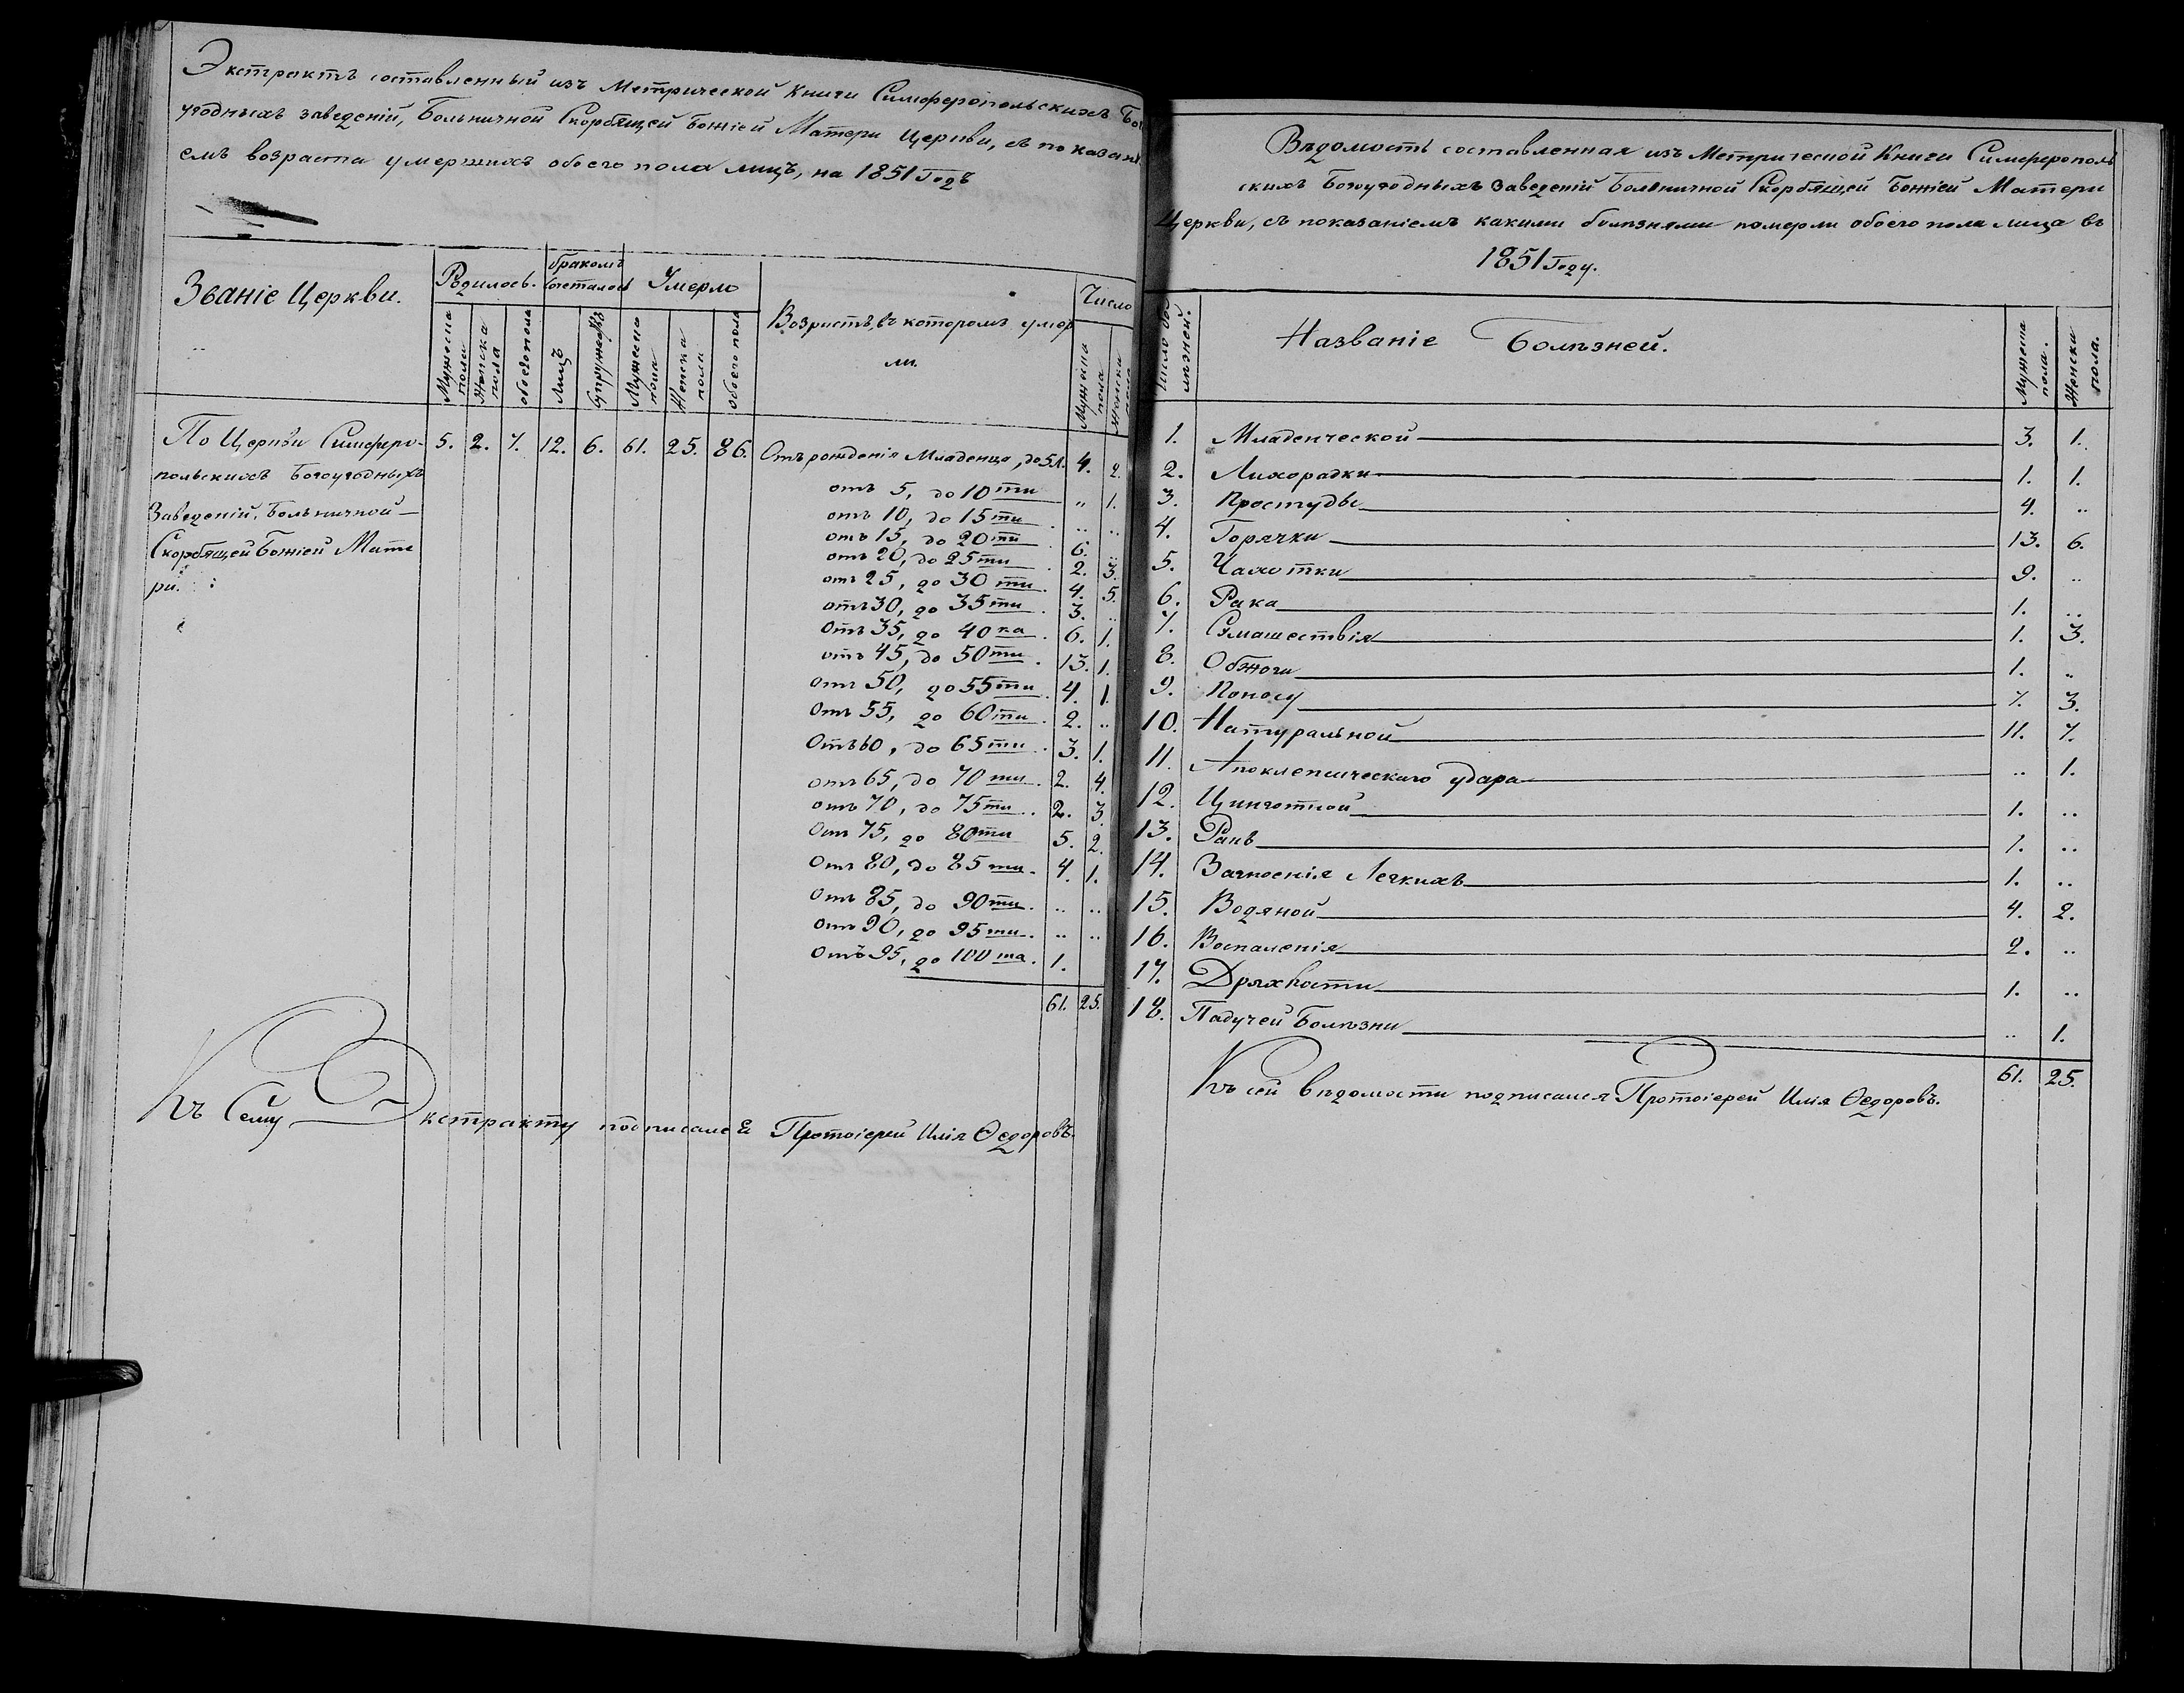 Экстрактъ составленный изъ Метрической Книги Симферопольскихъ Бого
угодныхъ заведеній, Больничной Скорбящей Божіей Матери Церкви, съ показані
емъ возраста умершихъ обоего пола лицъ, на 1851 Годъ
Званіе Церкви.
Родилось.
бракомъ
сочеталось
Умерло
Возрастъ, въ которомъ умер
ли.
Число
Мужеска
пола
Женска
пола
обоего пола
Лицъ
Супружествъ
Мужеска
пола
Женска
пола
обоего пола
Мужеска
пола
Женска
пола
По Церкви Симферо- 5. 2. 7. 12. 6. 61. 25. 86. Отъ рожденія Младенца, до 5 л. 4. 2.
польскихъ Богоугодныхъ
Заведеній, Больничной
Скорбящей Божіей Мате
ри.
отъ 5, до 10ти „ 1.
отъ 10, до 15ти .. ..
отъ 15, до 20ти 6. ..
отъ 20, до 25ти 2. 3.
отъ 25, до 30ти 4. 5.
отъ 30, до 35ти 3. ..
отъ 35, до 40ка 6. 1.
отъ 45, до 50ти 13. 1.
отъ 50, до 55ти 4. 1.
отъ 55, до 60ти 2. ..
Отъ 60, до 65ти 3. 1.
отъ 65, до 70ти 2. 4.
отъ 70, до 75ти 2. 3.
Отъ 75, до 80ти 5. 2.
Отъ 80, до 85ти 4. 1.
Отъ 85, до 90ти .. ..
отъ 90, до 95ти .. ..
Отъ 95, до 100та 1.
61. 25.
Къ Сему Экстракту подписался Протоіерей Илія Ѳедоровъ.
Вѣдомость составленная изъ Метрической Книги Симферополь
скихъ Богоугодныхъ Заведеній Больничной Скорбящей Божіей Матери
Церкви, съ показаніемъ какими болѣзнями померли обоего пола лица въ
1851 Году.
Число бо
лѣзней.
Названіе Болѣзней.
Мужеска
пола.
Женска
пола.
1. Младенческой 3. 1.
2. Лихорадки 1. 1.
3. Простуды 4. ..
4. Горячки 13. 6.
5. Чахотки 9. ..
6. Рака 1. ..
7. Сумашествія 1. 3.
8. Обжоги 1. ..
9. Поносу 7. 3.
10. Натуральной 11. 7.
11. Апоклепсическаго удара .. 1.
12. Цинготной 1. ..
13. Ранъ 1. ..
14. Загноенія Легкихъ 1. ..
15. Водяной 4. 2.
16. Воспаленія 2. ..
17. Дряхлости 1. ..
18. Падучей Болѣзни .. 1.
61. 25.
Къ сей вѣдомости подписался Протоіерей Илія Ѳедоровъ.